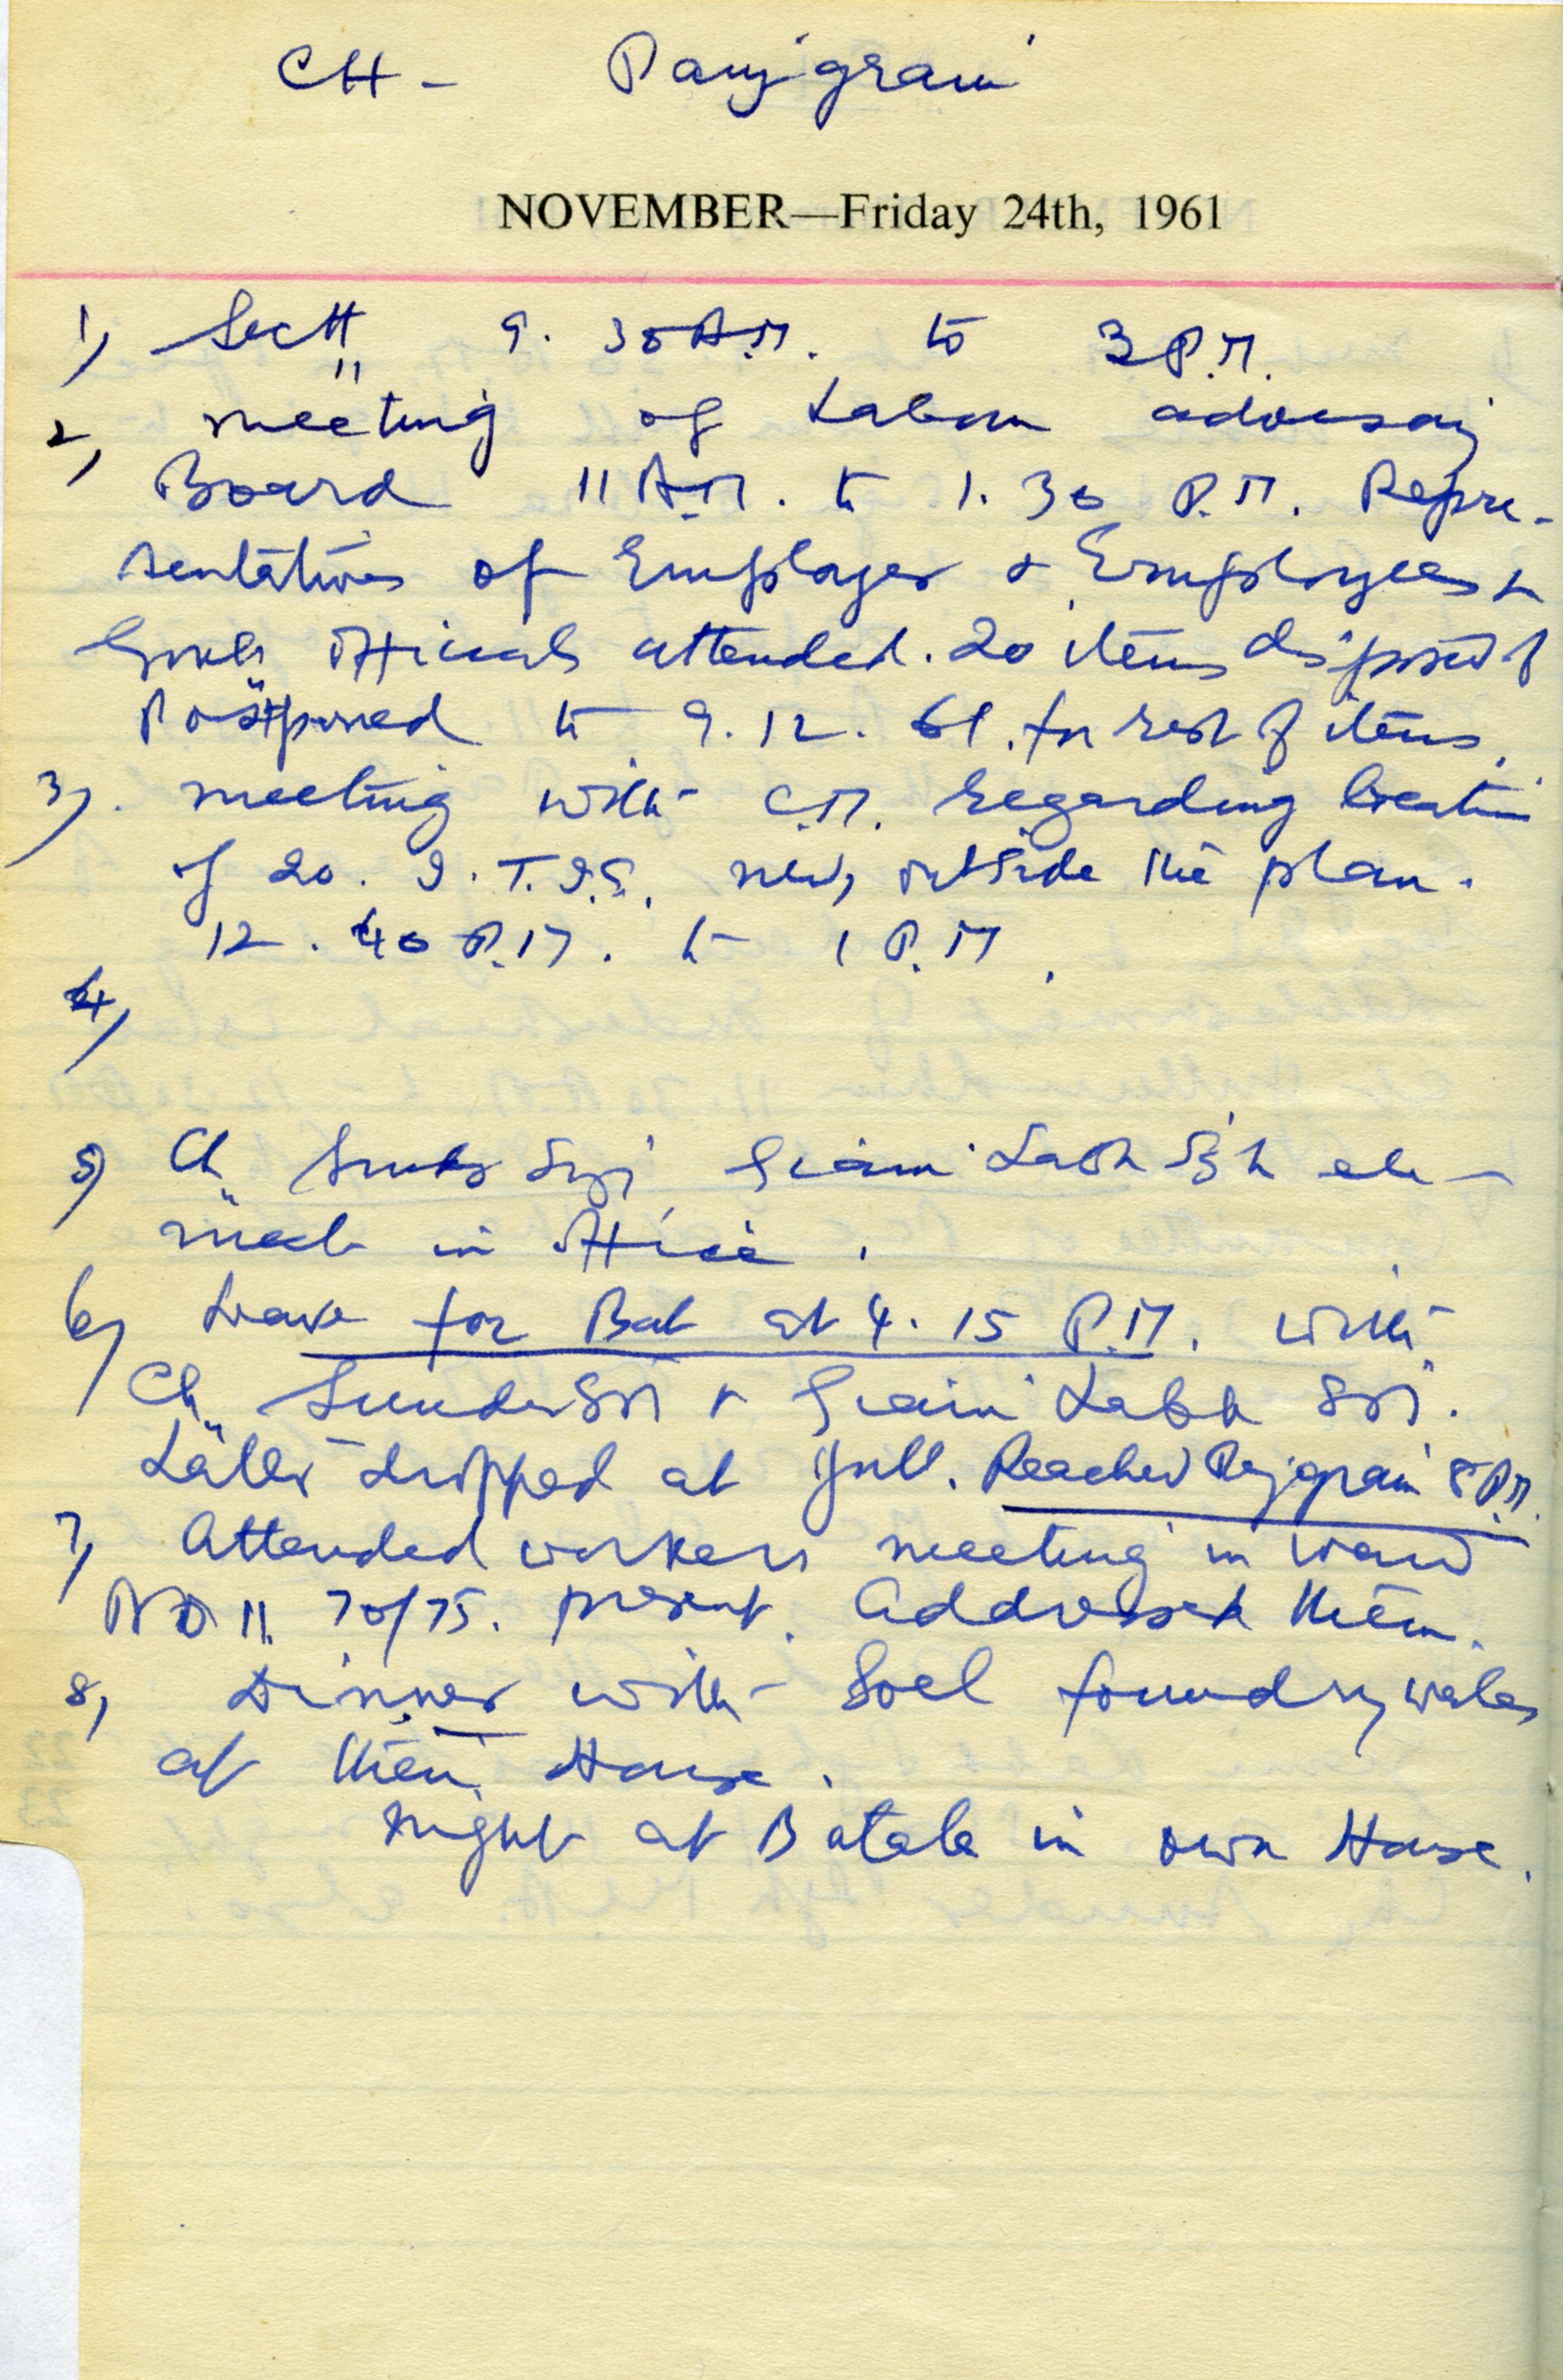 CH - Panjgrain
NOVEMBER—Friday 24th, 1961
1) Sectt 9.30 A.M. to 3 P.M.
2) meeting of Labour advisory
Board 11 A.M. to 1.30 P.M. Repre-
sentatives of Employer & Employees &
Govt officials attended. 20 items disposed of
Postponed to 9.12.61. for rest of items.
3). meeting with C.M. regarding location
of 20. I.T.I.S. new, outside the plan.
12.40 P.M. to 1 P.M.
4)
5) Ch Sunder Giani Labh etc
meet in office.
6) Leave for Bat at 4.15 P.M. with
Ch Sunder & Giani Labh
Latter dropped at Jull. Reached Pnjgrain 8 P.M.
7) Attended workers meeting in ward
No 11. 70/75. present. Addressed them.
8) Dinner with Goel foundry walas
at their House.
Night at Batala in own House.